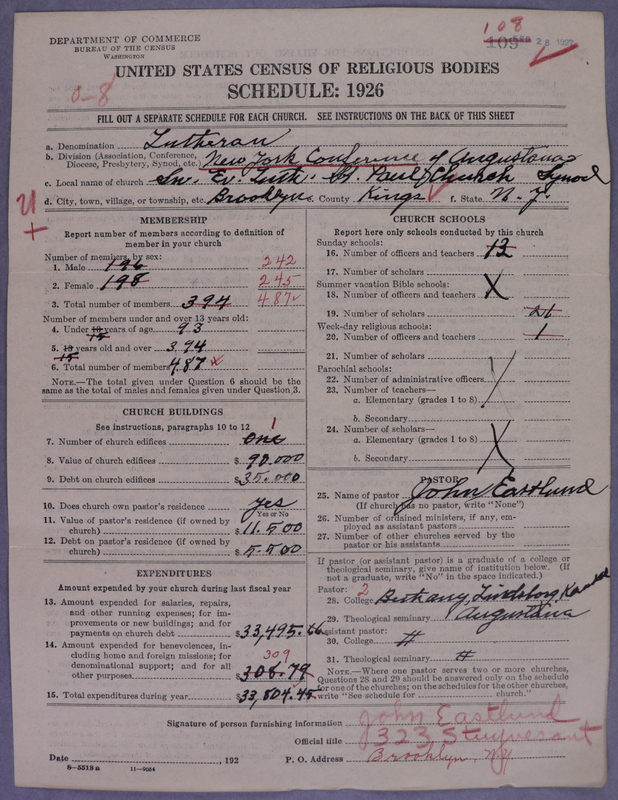 108
109 SEP 28 1927
DEPARTMENT OF COMMERCE
BUREAU OF THE CENSUS
WASHINGTON
UNITED STATES CENSUS OF RELIGIOUS BODIES
SCHEDULE: 1926
0-8
FILL OUT A SEPARATE SCHEDULE FOR EACH CHURCH. SEE INSTRUCTIONS ON THE BACK OF THIS SHEET
a. Denomination Lutheran
b. Division (Association, Conference, Diocese, Presbytery, Synod, etc.) New York Conference of Augustana Synod
c. Local name of church Sw. Ev. Luth. St. Paul Church
d. City, town, village, or township, etc. Brooklyn e. County Kings f. State N. Y.
U
+
MEMBERSHIP
Report number of members according to definition of
member in your church
Number of members, by sex:
1. Male 196 242
2. Female 198 245
3. Total number of members 394 487
Number of members under and over 13 years old:
4. Under 13 years of age 93
15
5. 13 years old and over 394
15
6. Total number of members 487 x
NOTE.—The total given under Question 6 should be the
same as the total of males and females given under Question 3.
CHURCH BUILDINGS
See instructions, paragraphs 10 to 12
7. Number of church edifices One 1
8. Value of church edifices $ 90.000
9. Debt on church edifices $ 35.000
10. Does church own pastor's residence yes
Yes or No
11. Value of pastor's residence (if owned by
church) $ 11.500
12. Debt on pastor's residence (if owned by
church) $ 5.500
EXPENDITURES
Amount expended by your church during last fiscal year
13. Amount expended for salaries, repairs,
and other running expenses; for im-
provements or new building; and for
payments on church debt $ 33,495.66
14. Amount expended for benevolences, in-
cluding home and foreign missions; for
denominational support; and for all
other purposes 309
$ 308.79
15. Total expenditures during year $ 33,804.45
CHURCH SCHOOLS
Report here only schools conducted by this church
Sunday schools:
16. Number of officers and teachers 13
17. Number of scholars
Summer vacation Bible schools:
18. Number of officers and teachers X
19. Number of scholars 21
Week-day religious schools:
20. Number of officers and teachers 1
21. Number of scholars
Parochial schools:
22. Number of administrative officers
23. Number of teachers—
a. Elementary (grades 1 to 8)
b. Secondary
24. Number of scholars—
a. Elementary (grades 1 to 8)
b. Secondary
PASTOR
25. Name of pastor John Eastlund
(If church has no pastor, write "None")
26. Number of ordained ministers, if any, em-
ployed as assistant pastors
27. Number of other churches served by the
pastor or his assistants
If pastor (or assistant pastor) is a graduate of a college or
theological seminary, give name of institution below. (If
not a graduate, write "No" in the space indicated.)
Pastor: 2
28. College Bethany, Lindsborg, Kansas
29. Theological seminary Augustana
Assistant pastor:
30. College #
31. Theological seminary #
NOTE.—Where one pastor serves two or more churches,
Questions 28 and 29 should be answered only on the schedule
for one of the churches; on the schedules for the other churches,
write "See schedule for church."
Signature of person furnishing information John Eastlund
Official title 323 Stuyvesant
Date , 192 P. O. Address Brooklyn, NY
8—5518 a 11—9064